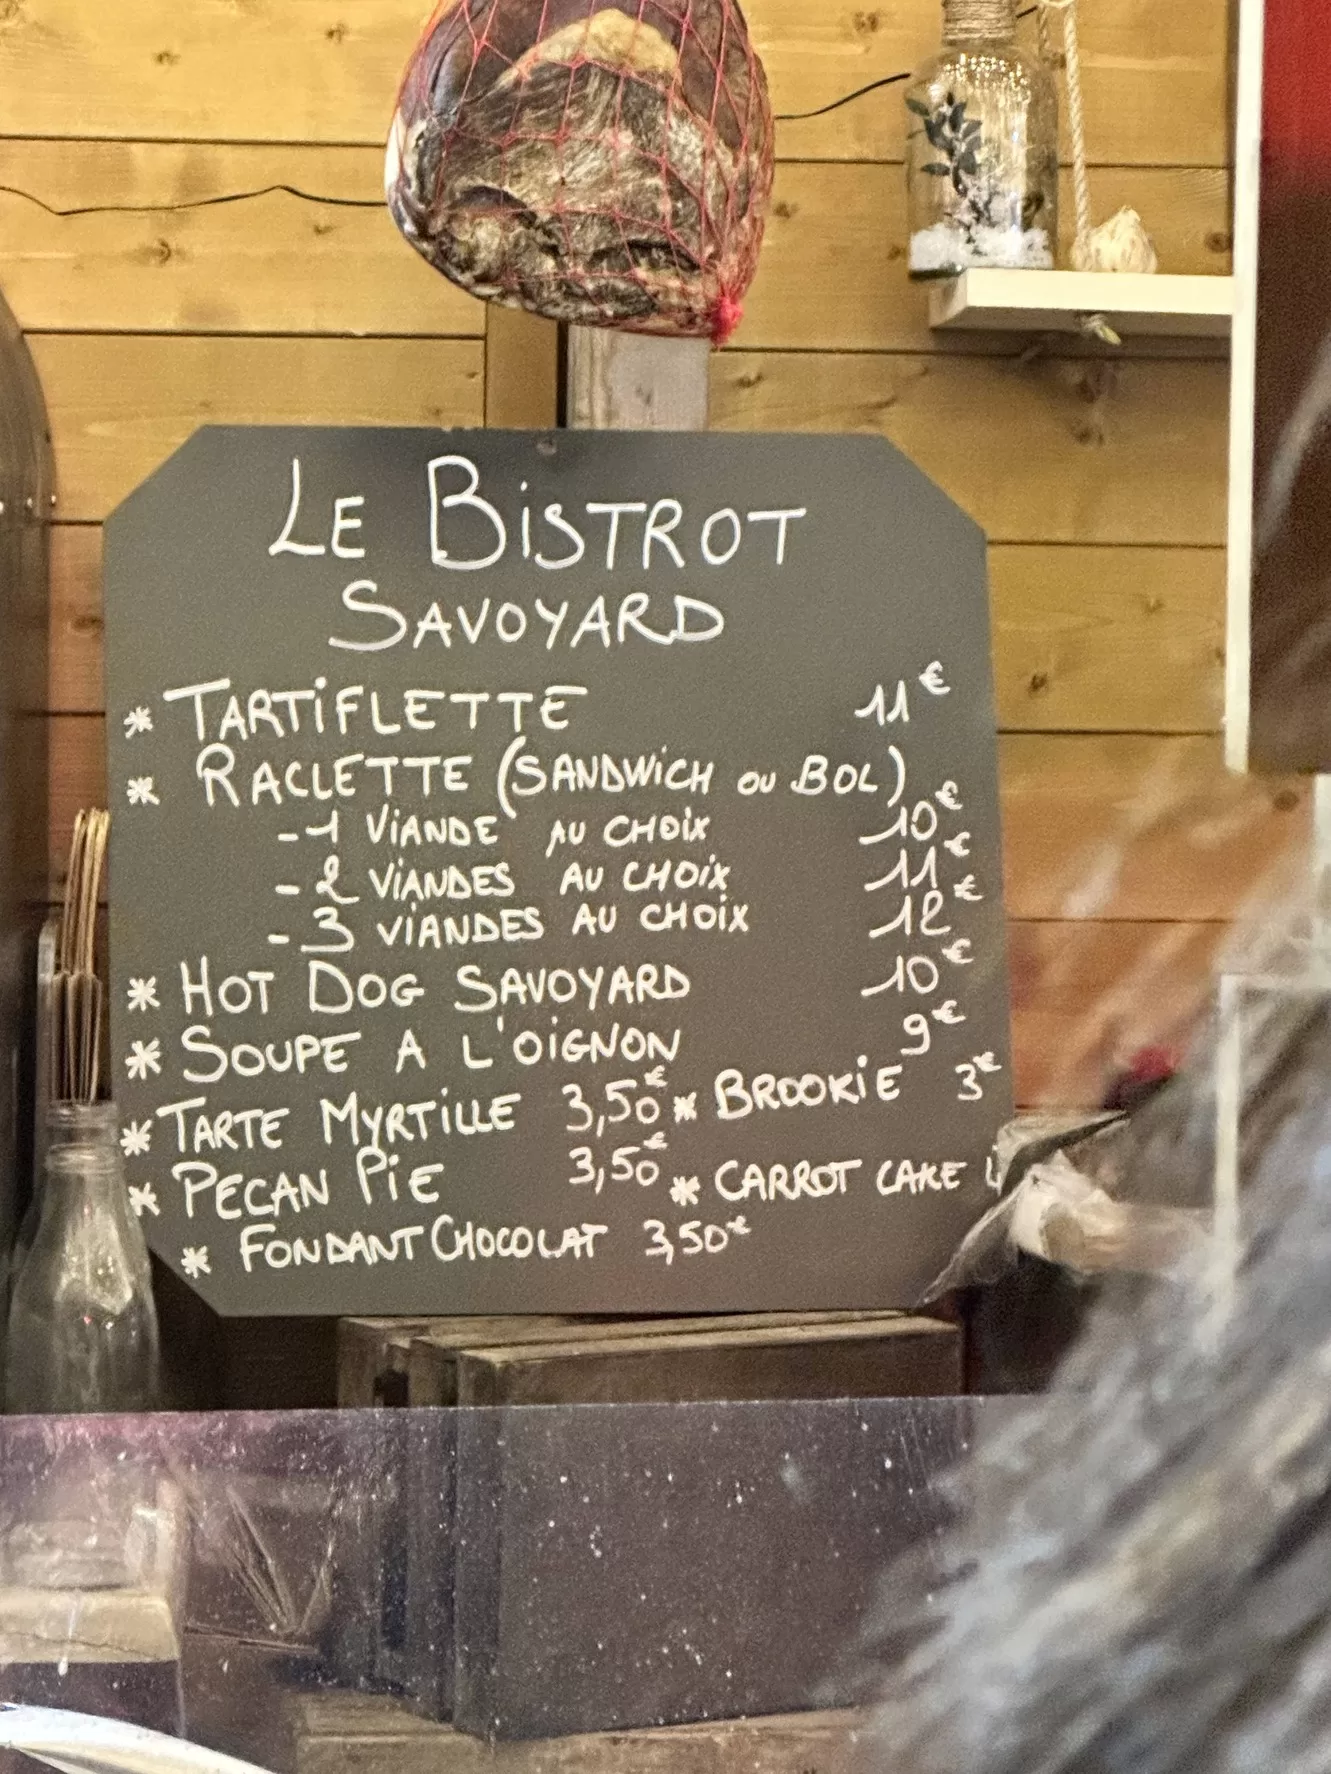 LE BiSTROT
SAVOYARD
* TARTiFLETTE 11€
* RACLETTE (SANDWiCH OU BOL)
- 1 ViANDE AU CHOiX 10€
- 2 ViANDES AU CHOiX 11€
- 3 ViANDES AU CHOiX 12€
* HOT DOG SAVOYARD 10€
* SOUPE A L'OiGNON 9€
* TARTE MYRTiLLE 3,50€ * BROOKiE 3€
* PECAN PiE 3,50€ * CARROT CAKE
* FONDANT CHOCOLAT 3,50€